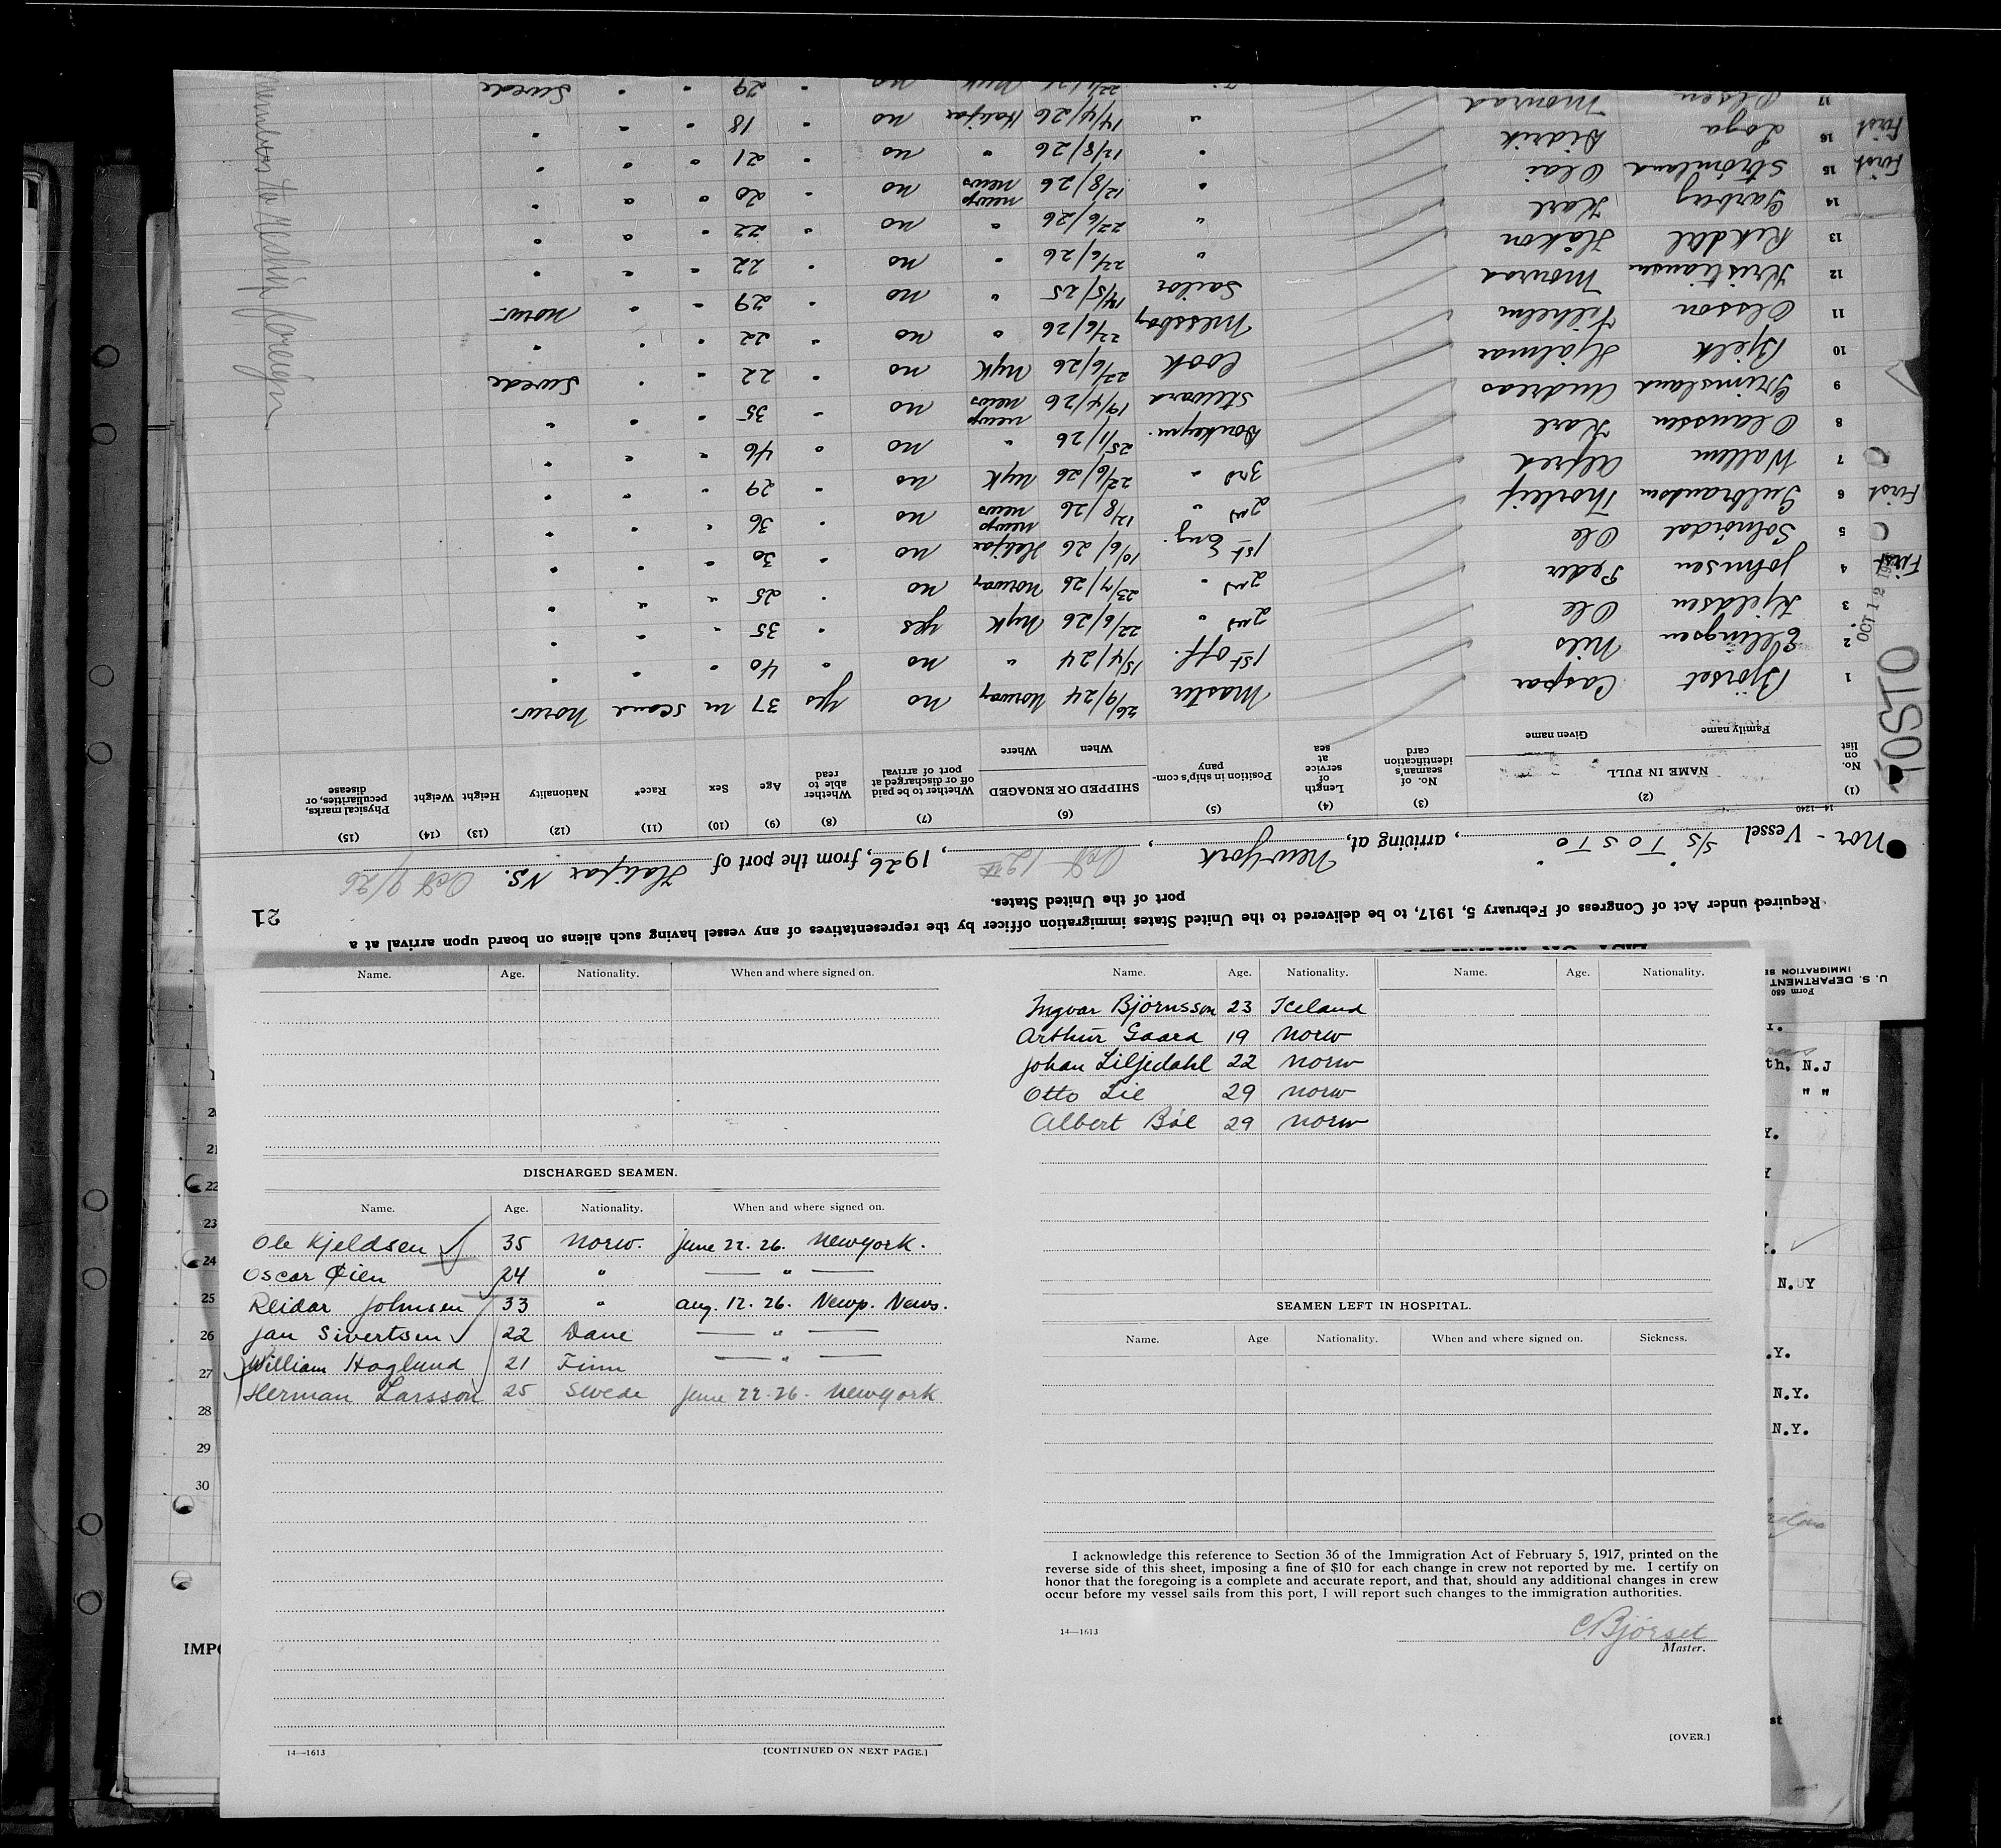 U. S. DEPARTMENT
IMMIGRATION SE
Form 680
Required under Act of Congress of February 5, 1917, to be delivered to the United States immigration officer by the representatives of any vessel having such aliens on board upon arrival at a
port of the United States.
21
Nor - Vessel S/S "TOSTO", arriving at, New York, Oct 12th, 1926, from the port of Halifax NS. Oct 9/26
14-1240
(1) (2) (3) (4) (5) (6) (7) (8) (9) (10) (11) (12) (13) (14) (15)
No. on list NAME IN FULL Family name Given name No. of seaman's identification card Length of service at sea Position in ship's company SHIPPED OR ENGAGED When Where Whether to be paid off or discharged at port of arrival Whether able to read Age Sex Race* Nationality Height Weight Physical marks, peculiarities, or disease
TOSTO
OCT 12 19
1 Bjorset Caspar Master 26/9/24 Norway no yes 37 m scand norw.
2 Ellingsen Nils 1st off. 15/4/24 " no " 40 " " "
3 Kjeldsen Ole 2nd " 22/6/26 NYK yes " 35 " " "
First 4 Johnsen Peder 2nd " 23/7/26 Norway no " 25 " " "
5 Solnördal Ole 1st Eng. 10/6/26 Halifax no " 30 " " "
First 6 Gulbrandsen Thorleif 2nd " 12/8/26 newp news no " 36 " " "
7 Wallem Alfred 3rd " 22/6/26 NYK no " 29 " " "
8 Olaussen Karl Donkeym. 25/1/26 " no " 46 " " "
9 Grimsland Andreas Steward 19/4/26 newp news no " 35 " " "
10 Bjelk Hjalmar Cook 22/6/26 NYK no " 22 " " Swede
11 Olsson Vilhelm Messboy 22/6/26 " no " 22 " " "
12 Kristiansen Monrad Sailor 14/5/25 " no " 29 " " norw.
13 Rekdal Håkon " 22/6/26 " no " 22 " " "
14 Garbog Karl " 22/6/26 " no " 22 " " "
First 15 Strömland Olai " 12/8/26 newp news no " 20 " " "
First 16 Loga Didrik " 12/8/26 " no " 21 " " "
17 Olsen Monrad " 14/4/26 Halifax no " 18 " " "
29 " " Swede
members to reship foreign
Name. Age. Nationality. When and where signed on.
DISCHARGED SEAMEN.
Name. Age. Nationality. When and where signed on.
Ole Kjeldsen 35 Norw. June 22. 26. Newyork.
Oscar Øien 24 " — " —
Reidar Johnsen 33 " Aug. 12. 26. Newp. News.
Jan Sivertsen 22 Dane — " —
William Hoglund 21 Finn — " —
Herman Larsson 25 Swede June 22. 26. Newyork
14—1613
[CONTINUED ON NEXT PAGE.]
Name. Age. Nationality. Name. Age. Nationality.
Ingvar Björnsson 23 Iceland
Arthur Gaard 19 norw
Johan Liljedahl 22 norw
Otto Lie 29 norw
Albert Böe 29 norw
SEAMEN LEFT IN HOSPITAL.
Name. Age Nationality. When and where signed on. Sickness.
I acknowledge this reference to Section 36 of the Immigration Act of February 5, 1917, printed on the
reverse side of this sheet, imposing a fine of $10 for each change in crew not reported by me. I certify on
honor that the foregoing is a complete and accurate report, and that, should any additional changes in crew
occur before my vessel sails from this port, I will report such changes to the immigration authorities.
14—1613
C Bjørset
Master.
[OVER.]
21
22
23
24
25
26
27
28
29
30
IMPO
th, N.J
" "
N.Y
.Y.
N.Y.
N.Y.
st